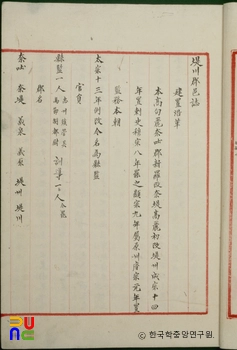 堤川郡邑誌
建置沿革
本高句麗奈吐郡新羅改奈堤高麗初改堤川成宗十四
年置刺史穆宗八年罷之顯宗九年屬原州睿宗元年置
監務本朝
太宗十三年例改今名爲縣監
官員
縣監一人 訓導一人
郡名
奈吐 奈堤 義泉 義原 堤州 堤川
ⓒ 한국학중앙연구원